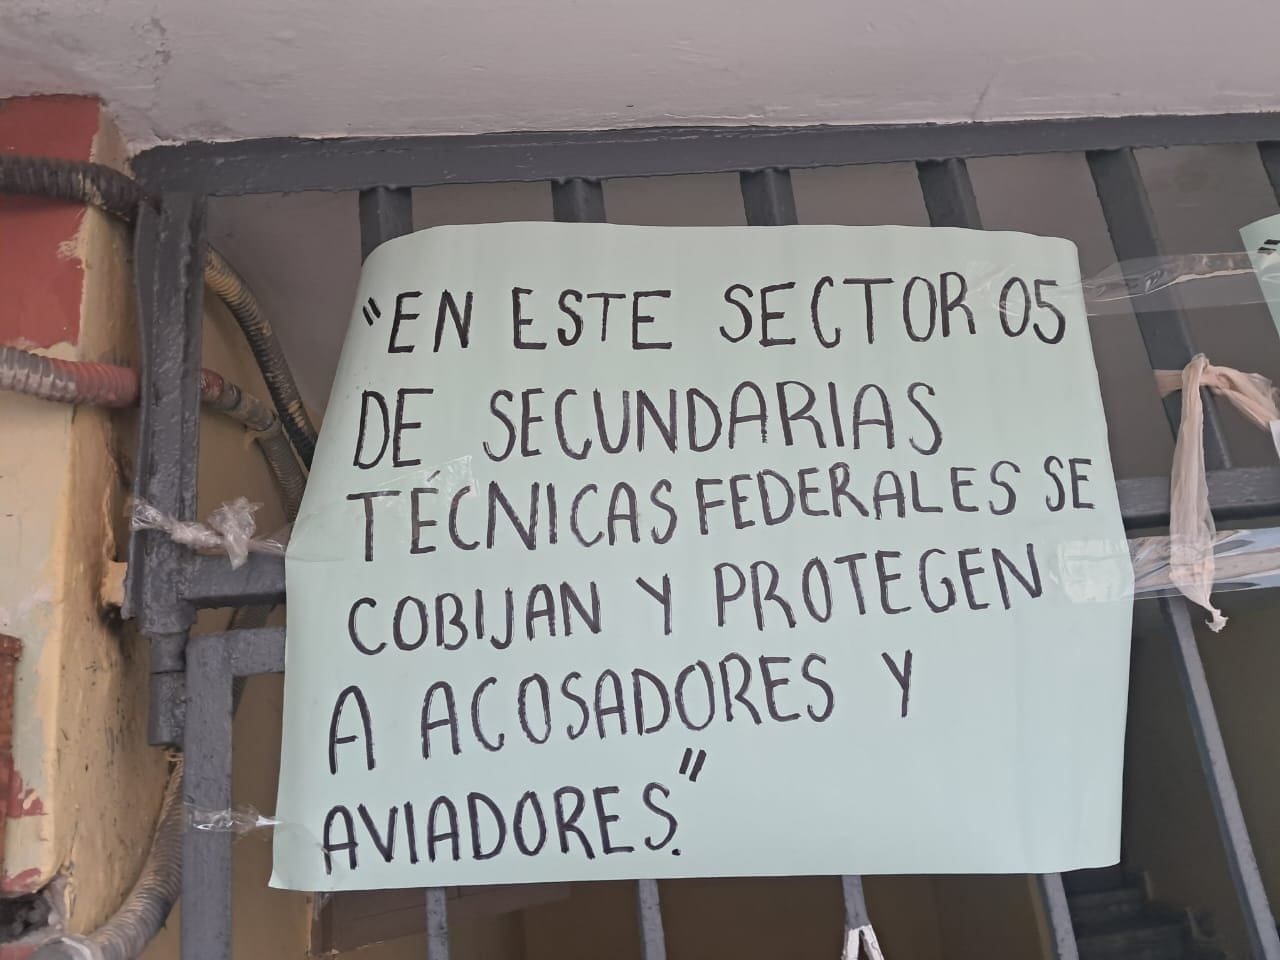 "EN ESTE SECTOR 05
DE SECUNDARIAS
TÉCNICAS FEDERALES SE
COBIJAN Y PROTEGEN
A ACOSADORES Y
AVIADORES."